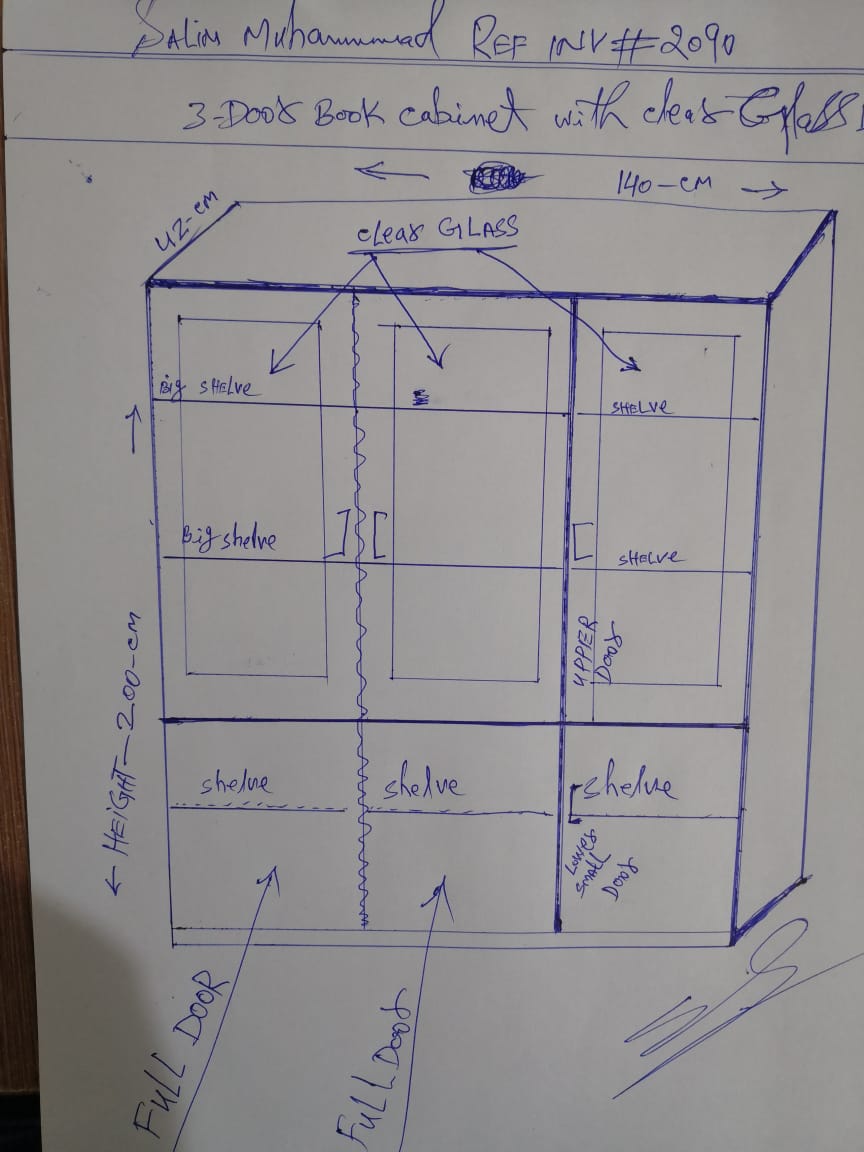 SALIM MUHAMMAD REF INV#2090
3-Door Book cabinet with clear Glass
140-CM
42-CM
clear GLASS
Big SHELVE
SHELVE
Big shelve
SHELVE
UPPER Door
HEIGHT-200-CM
shelve shelve shelve
Lower SMALL Door
FULL DOOR
FULL Door